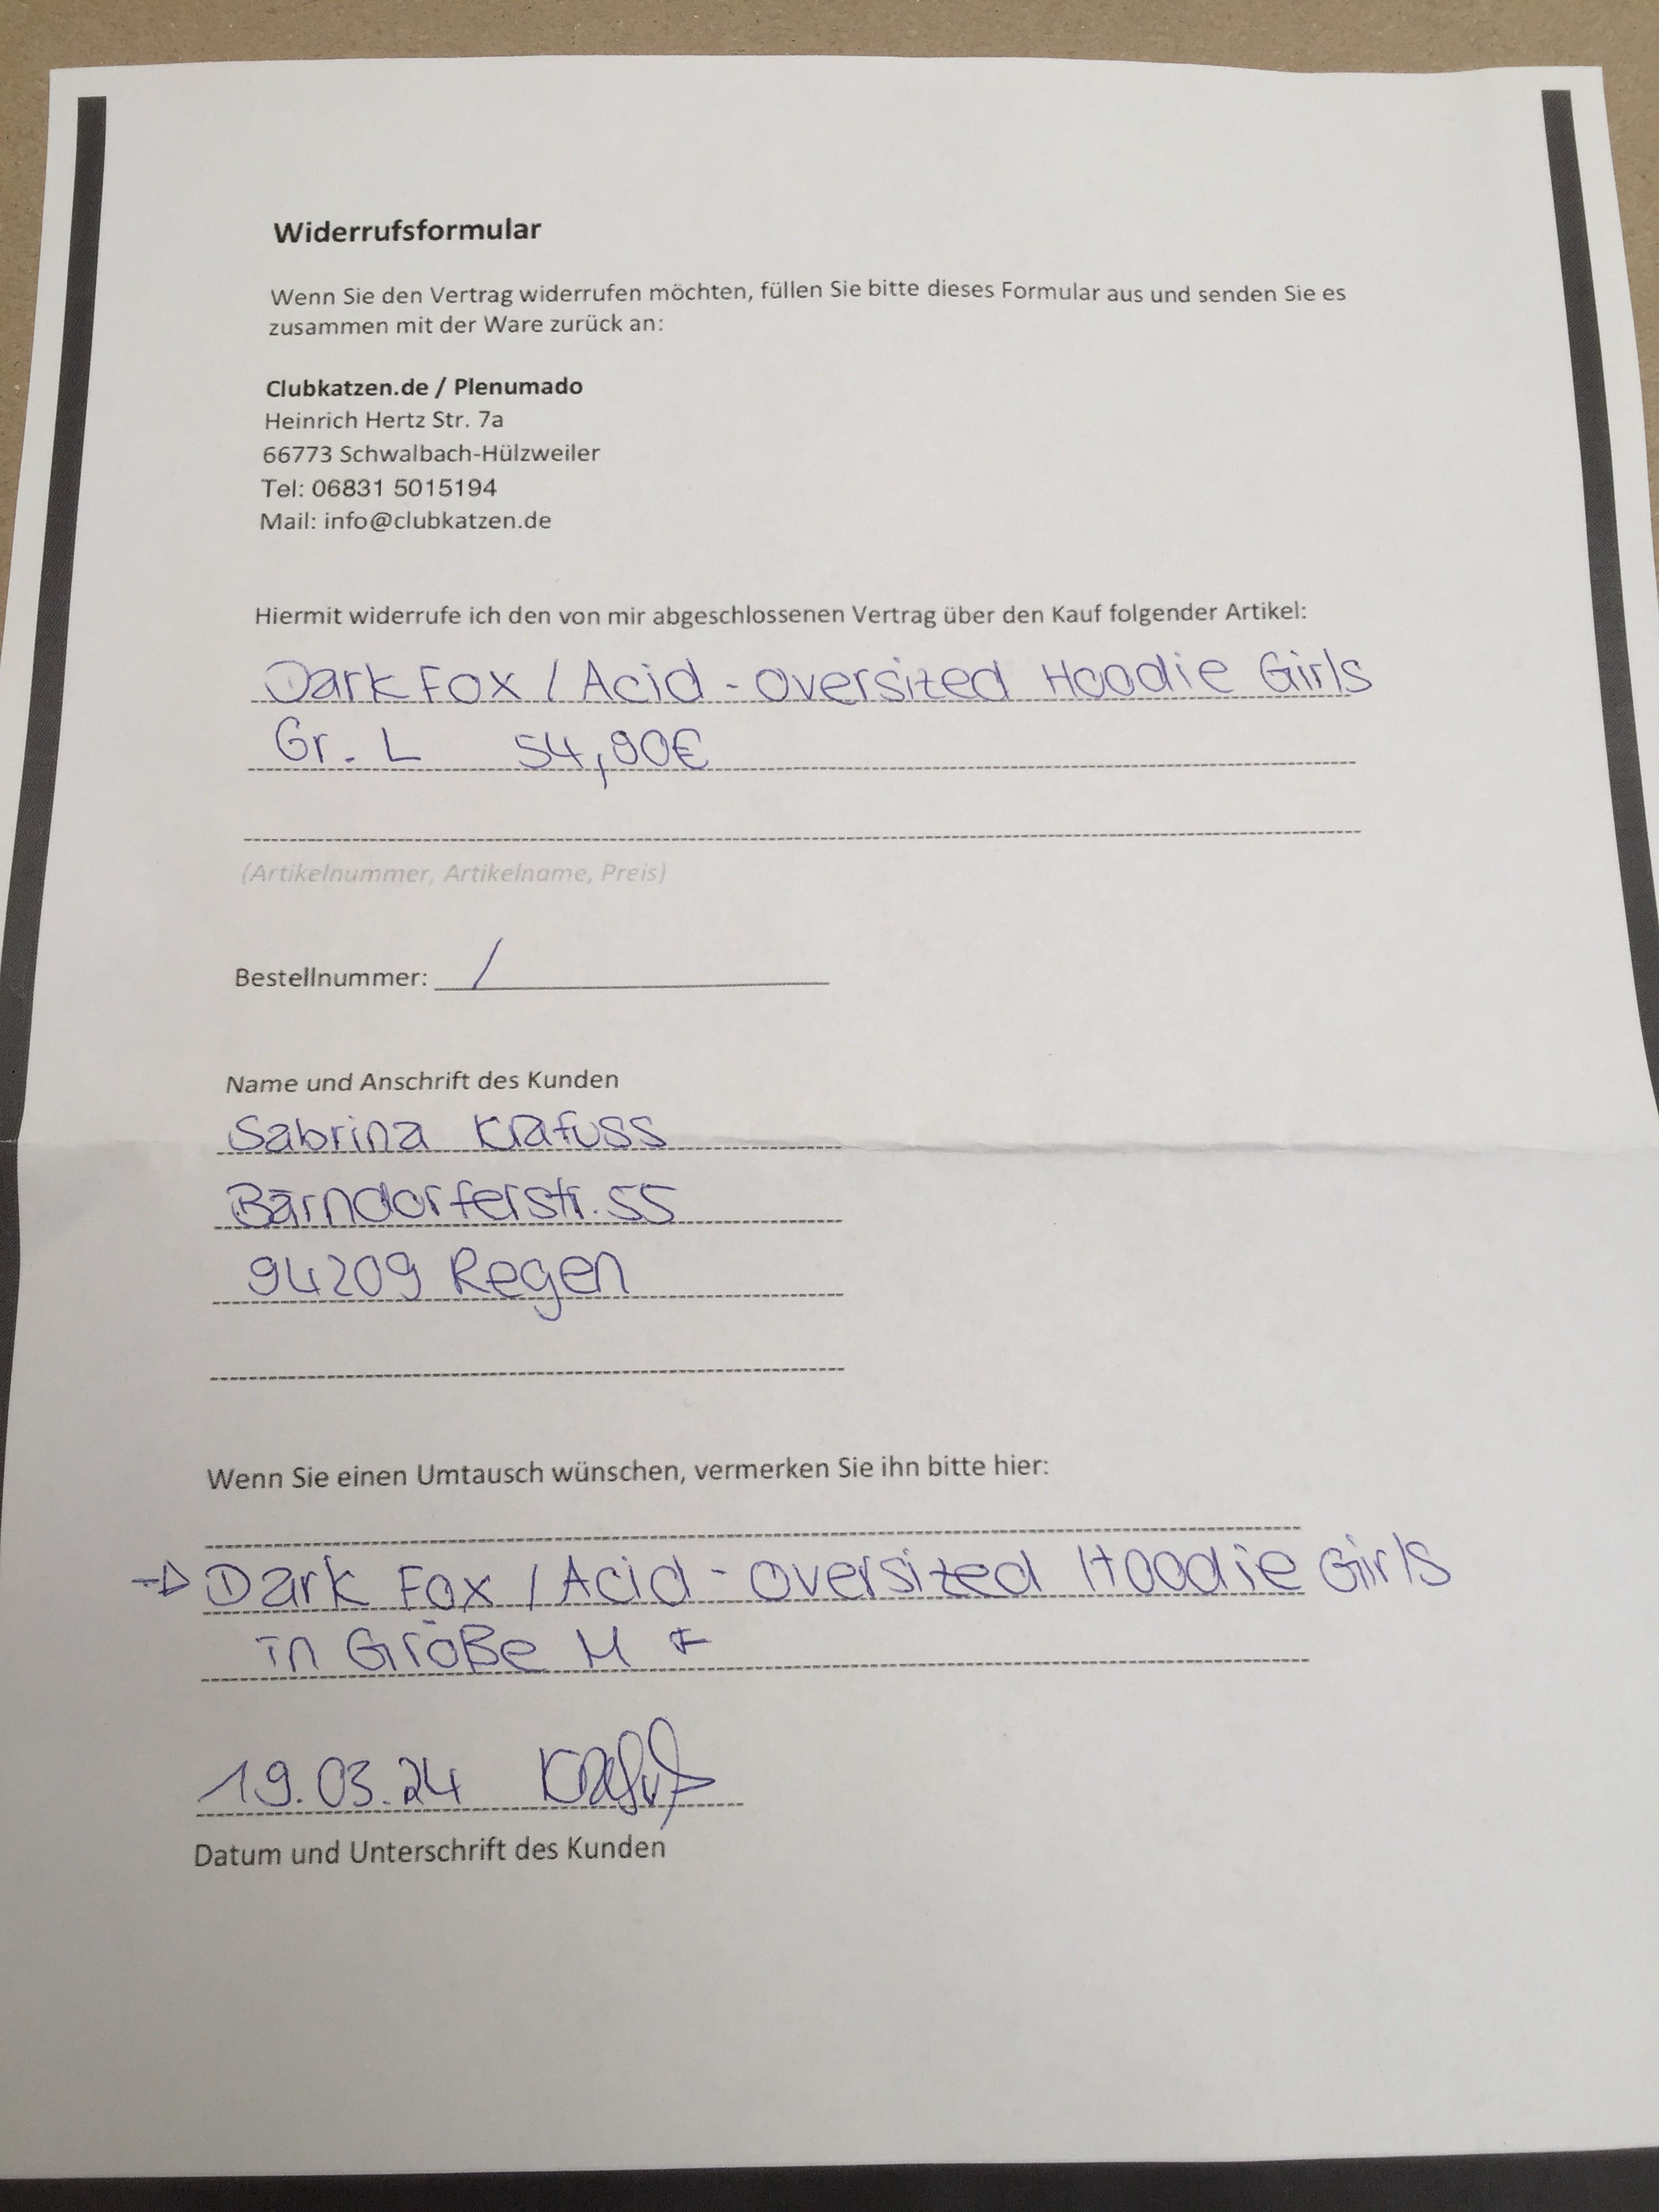 Widerrufsformular
Wenn Sie den Vertrag widerrufen möchten, füllen Sie bitte dieses Formular aus und senden Sie es
zusammen mit der Ware zurück an:
Clubkatzen.de / Plenumado
Heinrich Hertz Str. 7a
66773 Schwalbach-Hülzweiler
Tel: 06831 5015194
Mail: info@clubkatzen.de
Hiermit widerrufe ich den von mir abgeschlossenen Vertrag über den Kauf folgender Artikel:
Dark Fox / Acid - oversized Hoodie Girls
Gr. L 54,90€
(Artikelnummer, Artikelname, Preis)
Bestellnummer: /
Name und Anschrift des Kunden
Sabrina Krafuss
Bärndorferstr. 55
94209 Regen
Wenn Sie einen Umtausch wünschen, vermerken Sie ihn bitte hier:
→ Dark Fox / Acid - oversized Hoodie Girls
in Größe M
19.03.24
Datum und Unterschrift des Kunden